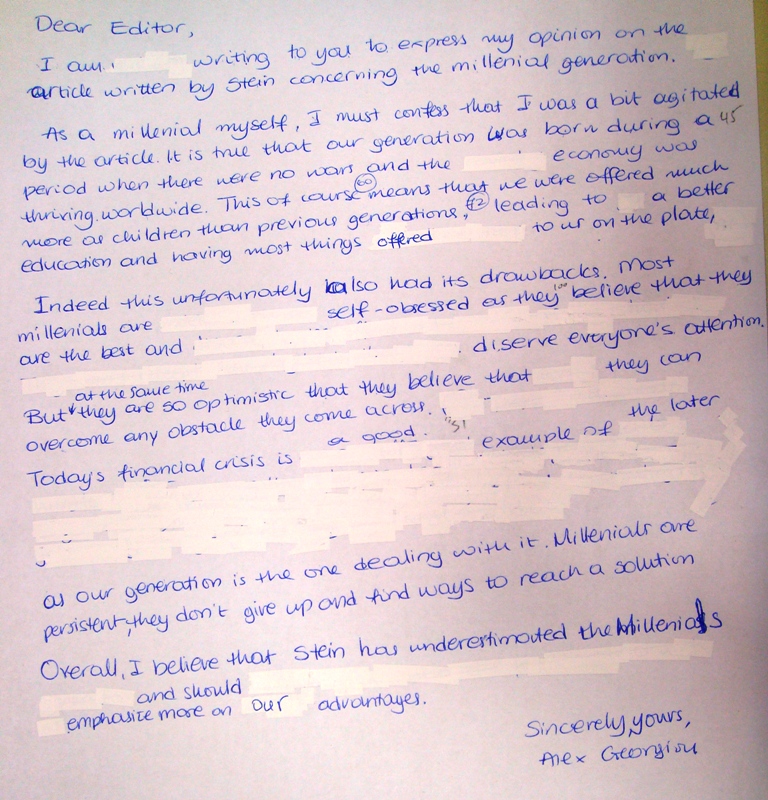 Dear Editor,
I am writing to you to express my opinion on the
article written by Stein concerning the millenial generation.
As a millenial myself, I must confess that I was a bit agitated
by the article. It is true that our generation was born during a 45
period when there were no wars and the economy was
thriving worldwide. This of course 60 means that we were offered much
more as children than previous generations, 72 leading to a better
education and having most things offered to us on the plate,
Indeed this unfortunately also had its drawbacks. Most
millenials are self-obsessed as they 100 believe that they
are the best and diserve everyone's attention.
at the same time
But they are so optimistic that they believe that they can
overcome any obstacle they come across.
Today's financial crisis is a good 131 example of the later
as our generation is the one dealing with it. Millenials are
persistent, they don't give up and find ways to reach a solution
Overall, I believe that Stein has underestimated the Millenials
and should
emphasize more on our advantages.
Sincerely yours,
Alex Georgiou